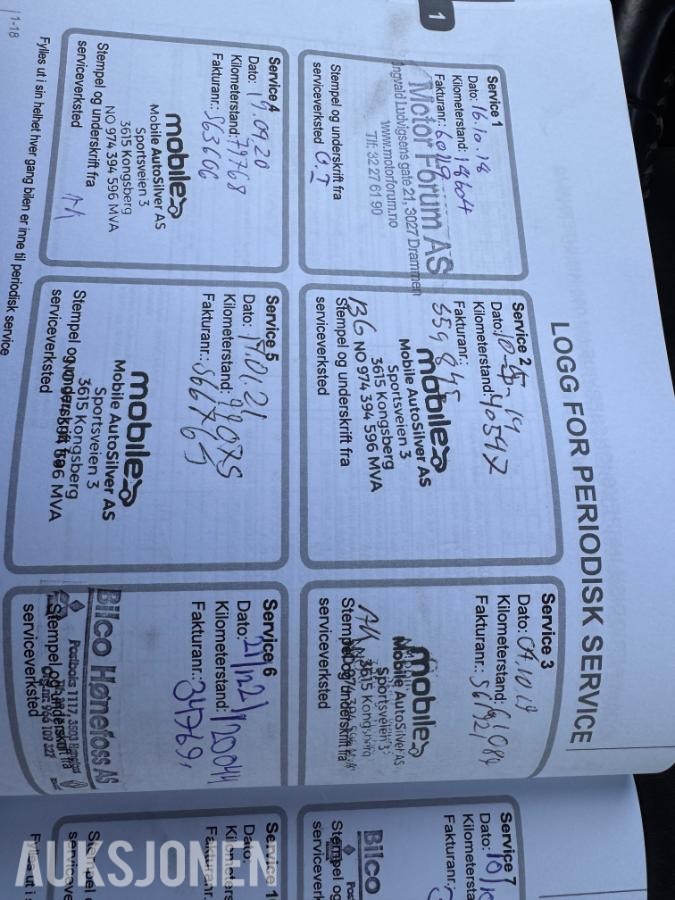 1
LOGG FOR PERIODISK SERVICE
Service 1
Dato: 16.10.18
Kilometerstand: 18604
Fakturanr.: 60119
Motor Forum AS
Ingvald Ludvigsens gate 21, 3027 Drammen
www.motorforum.no
Tlf: 32 27 61 90
Stempel og underskrift fra
serviceverksted
Service 2
Dato:
Kilometerstand:
Fakturanr.:
559845
mobile
Mobile AutoSilver AS
Sportsveien 3
3615 Kongsberg
BG NO 974 394 596 MVA
Stempel og underskrift fra
serviceverksted
Service 3
Dato: 04.10.19
Kilometerstand: 61084
Fakturanr.: 561921
mobile
Mobile AutoSilver AS
Sportsveien 3
3615 Kongsberg
AK
Stempel og underskrift fra
serviceverksted
Service 4
Dato: 17.09.20
Kilometerstand: 77768
Fakturanr.: 563606
mobile
Mobile AutoSilver AS
Sportsveien 3
3615 Kongsberg
NO 974 394 596 MVA
Stempel og underskrift fra
serviceverksted
Service 5
Dato: 19.01.21
Kilometerstand:
Fakturanr.: 566765
mobile
Mobile AutoSilver AS
Sportsveien 3
3615 Kongsberg
Stempel og underskrift fra
serviceverksted
Service 6
Dato:
Kilometerstand: 120044
Fakturanr.: 34769
Bilco Hønefoss AS
Postboks 1117, 3503 Hønefoss
Stempel og underskrift fra
serviceverksted
Fylles ut i sin helhet hver gang bilen er inne til periodisk service
1-18
Service 7
Dato: 10/
Kilometers
Fakturanr.:
Bilco
Stempel og
serviceverk
Dato:
Kilometers
Fakturanr.
Stempel o
serviceve
Fylles ut i s
AUKSJONEN